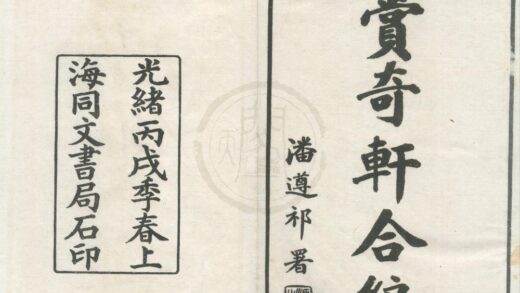 賞奇軒合編
潘遵祁署
光緒丙戌季春上
海同文書局石印